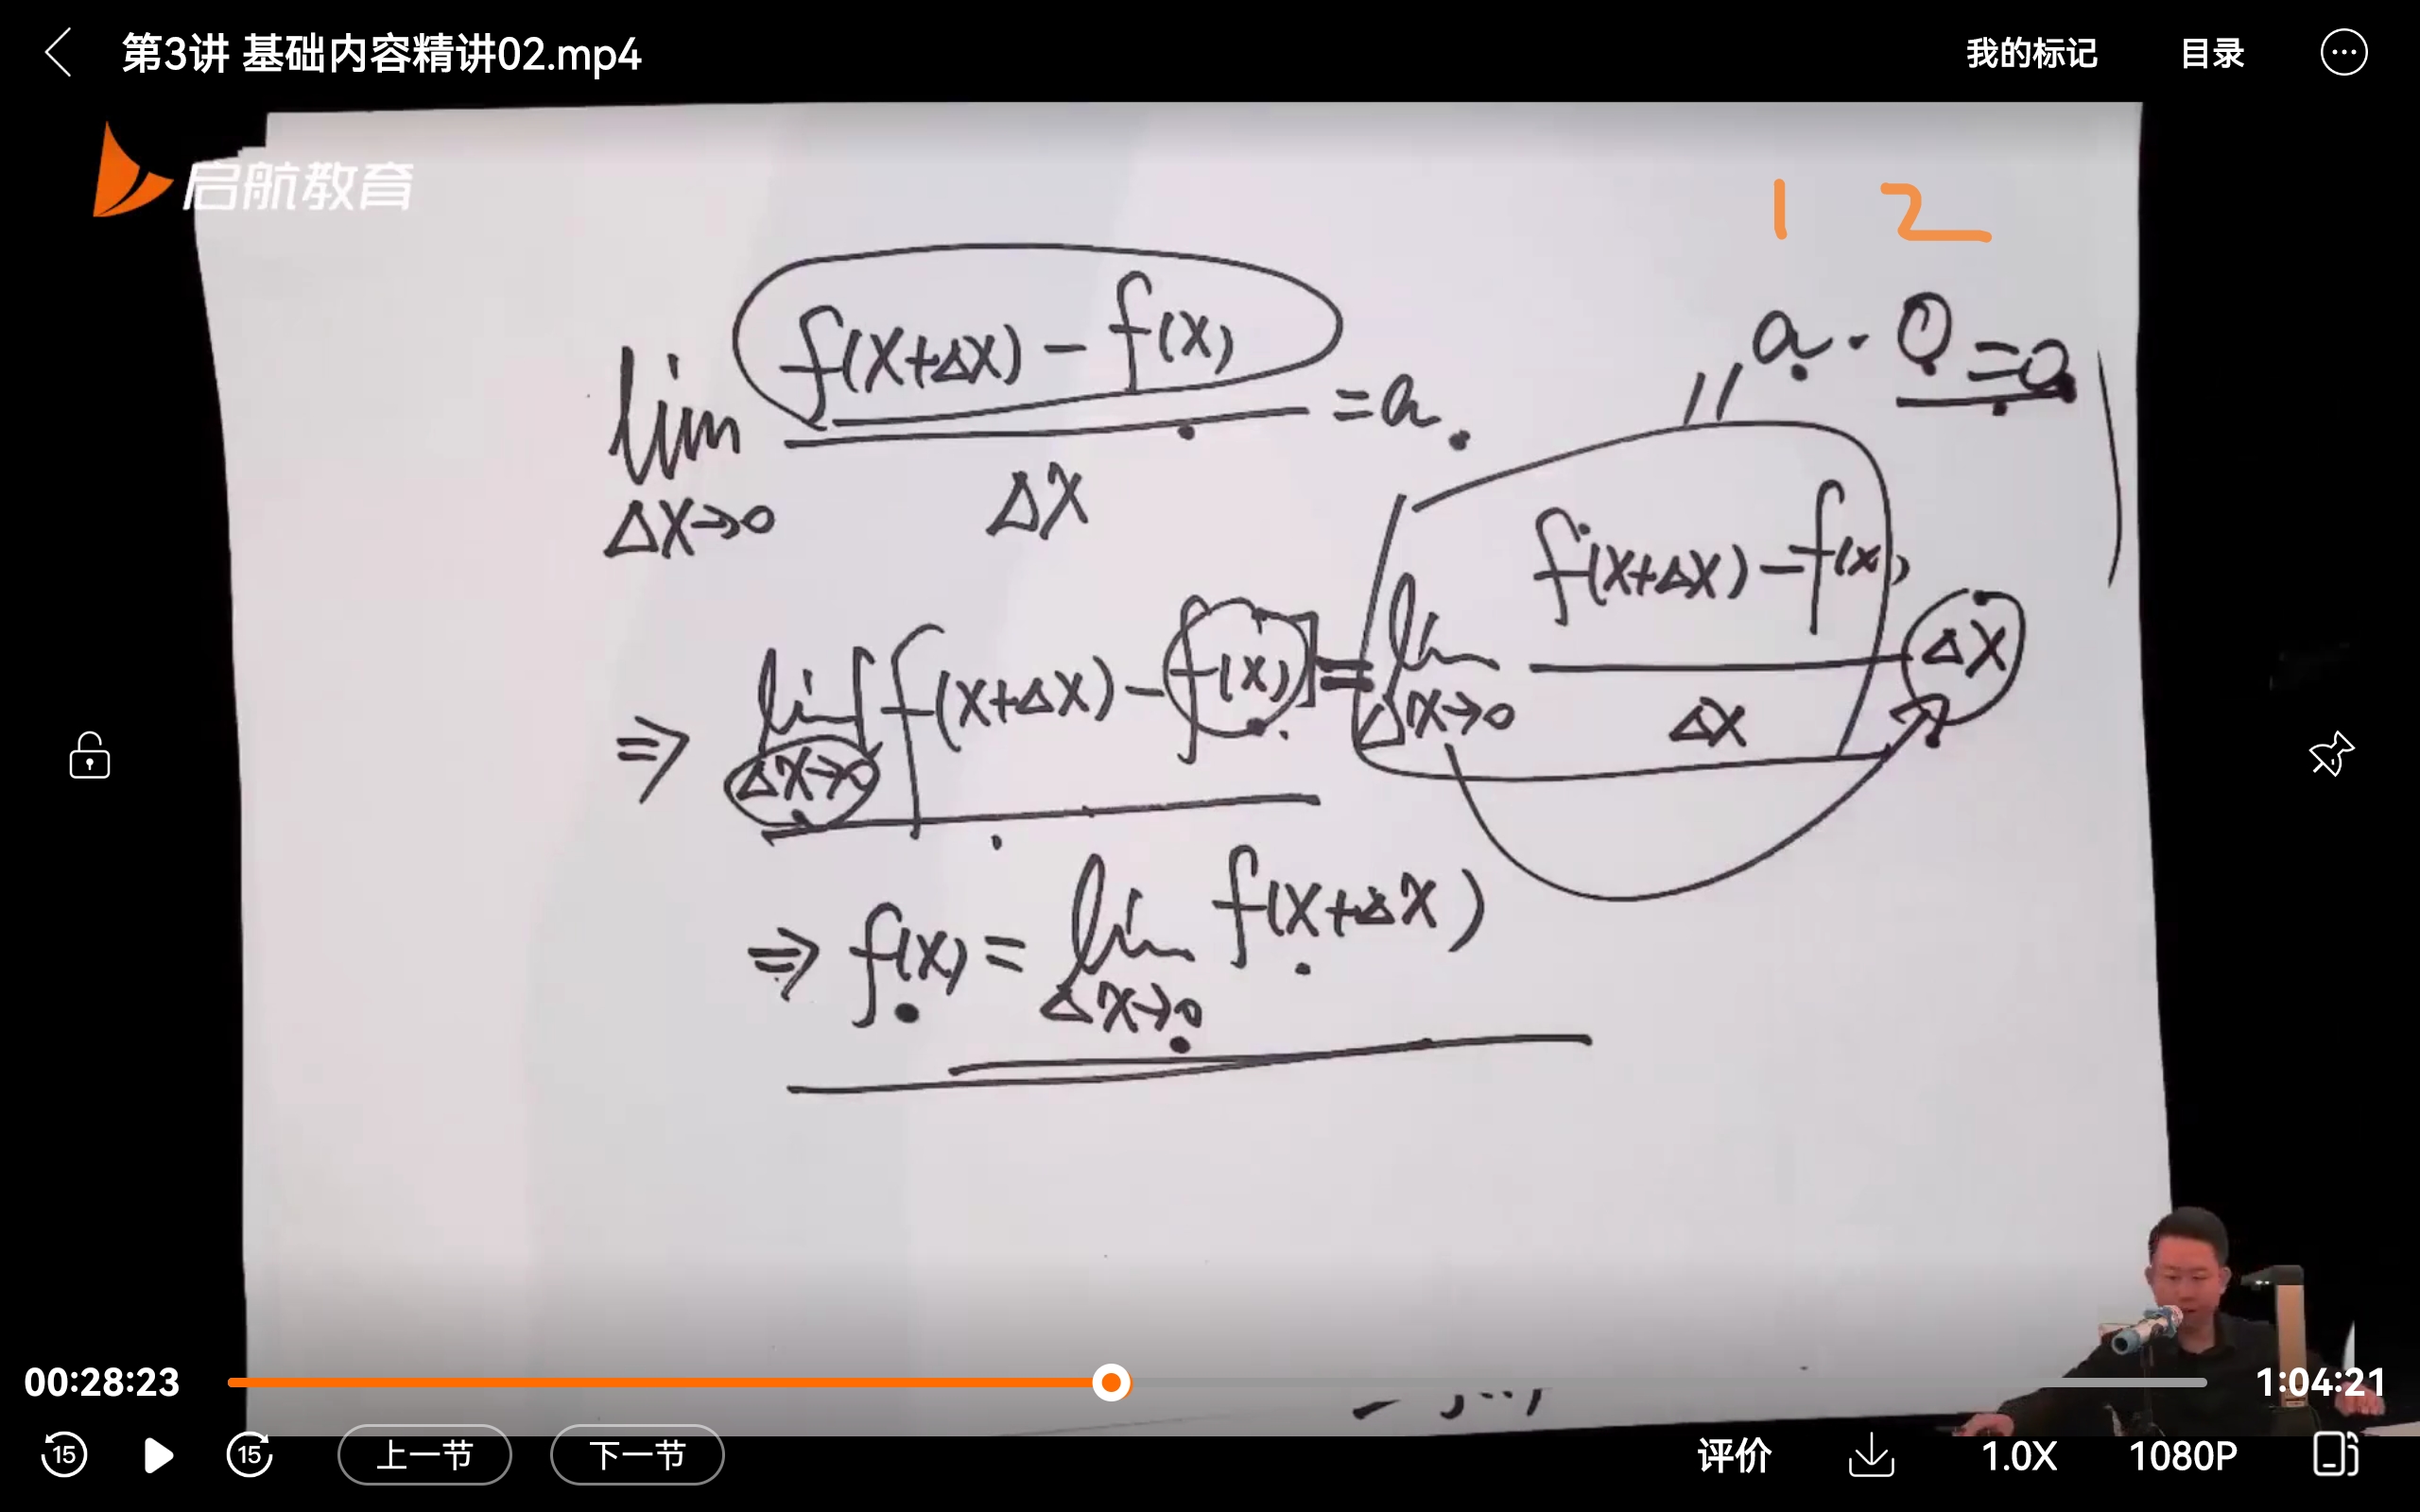 第3讲 基础内容精讲02.mp4 我的标记 目录
启航教育
1 2
lim f(x+Δx) − f(x) = a.
Δx→0 Δx
a · 0 = 0
⇒ lim [f(x+Δx) − f(x)] = lim f(x+Δx) − f(x) Δx
Δx→0 Δx→0 Δx
⇒ f(x) = lim f(x+Δx)
Δx→0
00:28:23 1:04:21
15 15 上一节 下一节 评价 1.0X 1080P